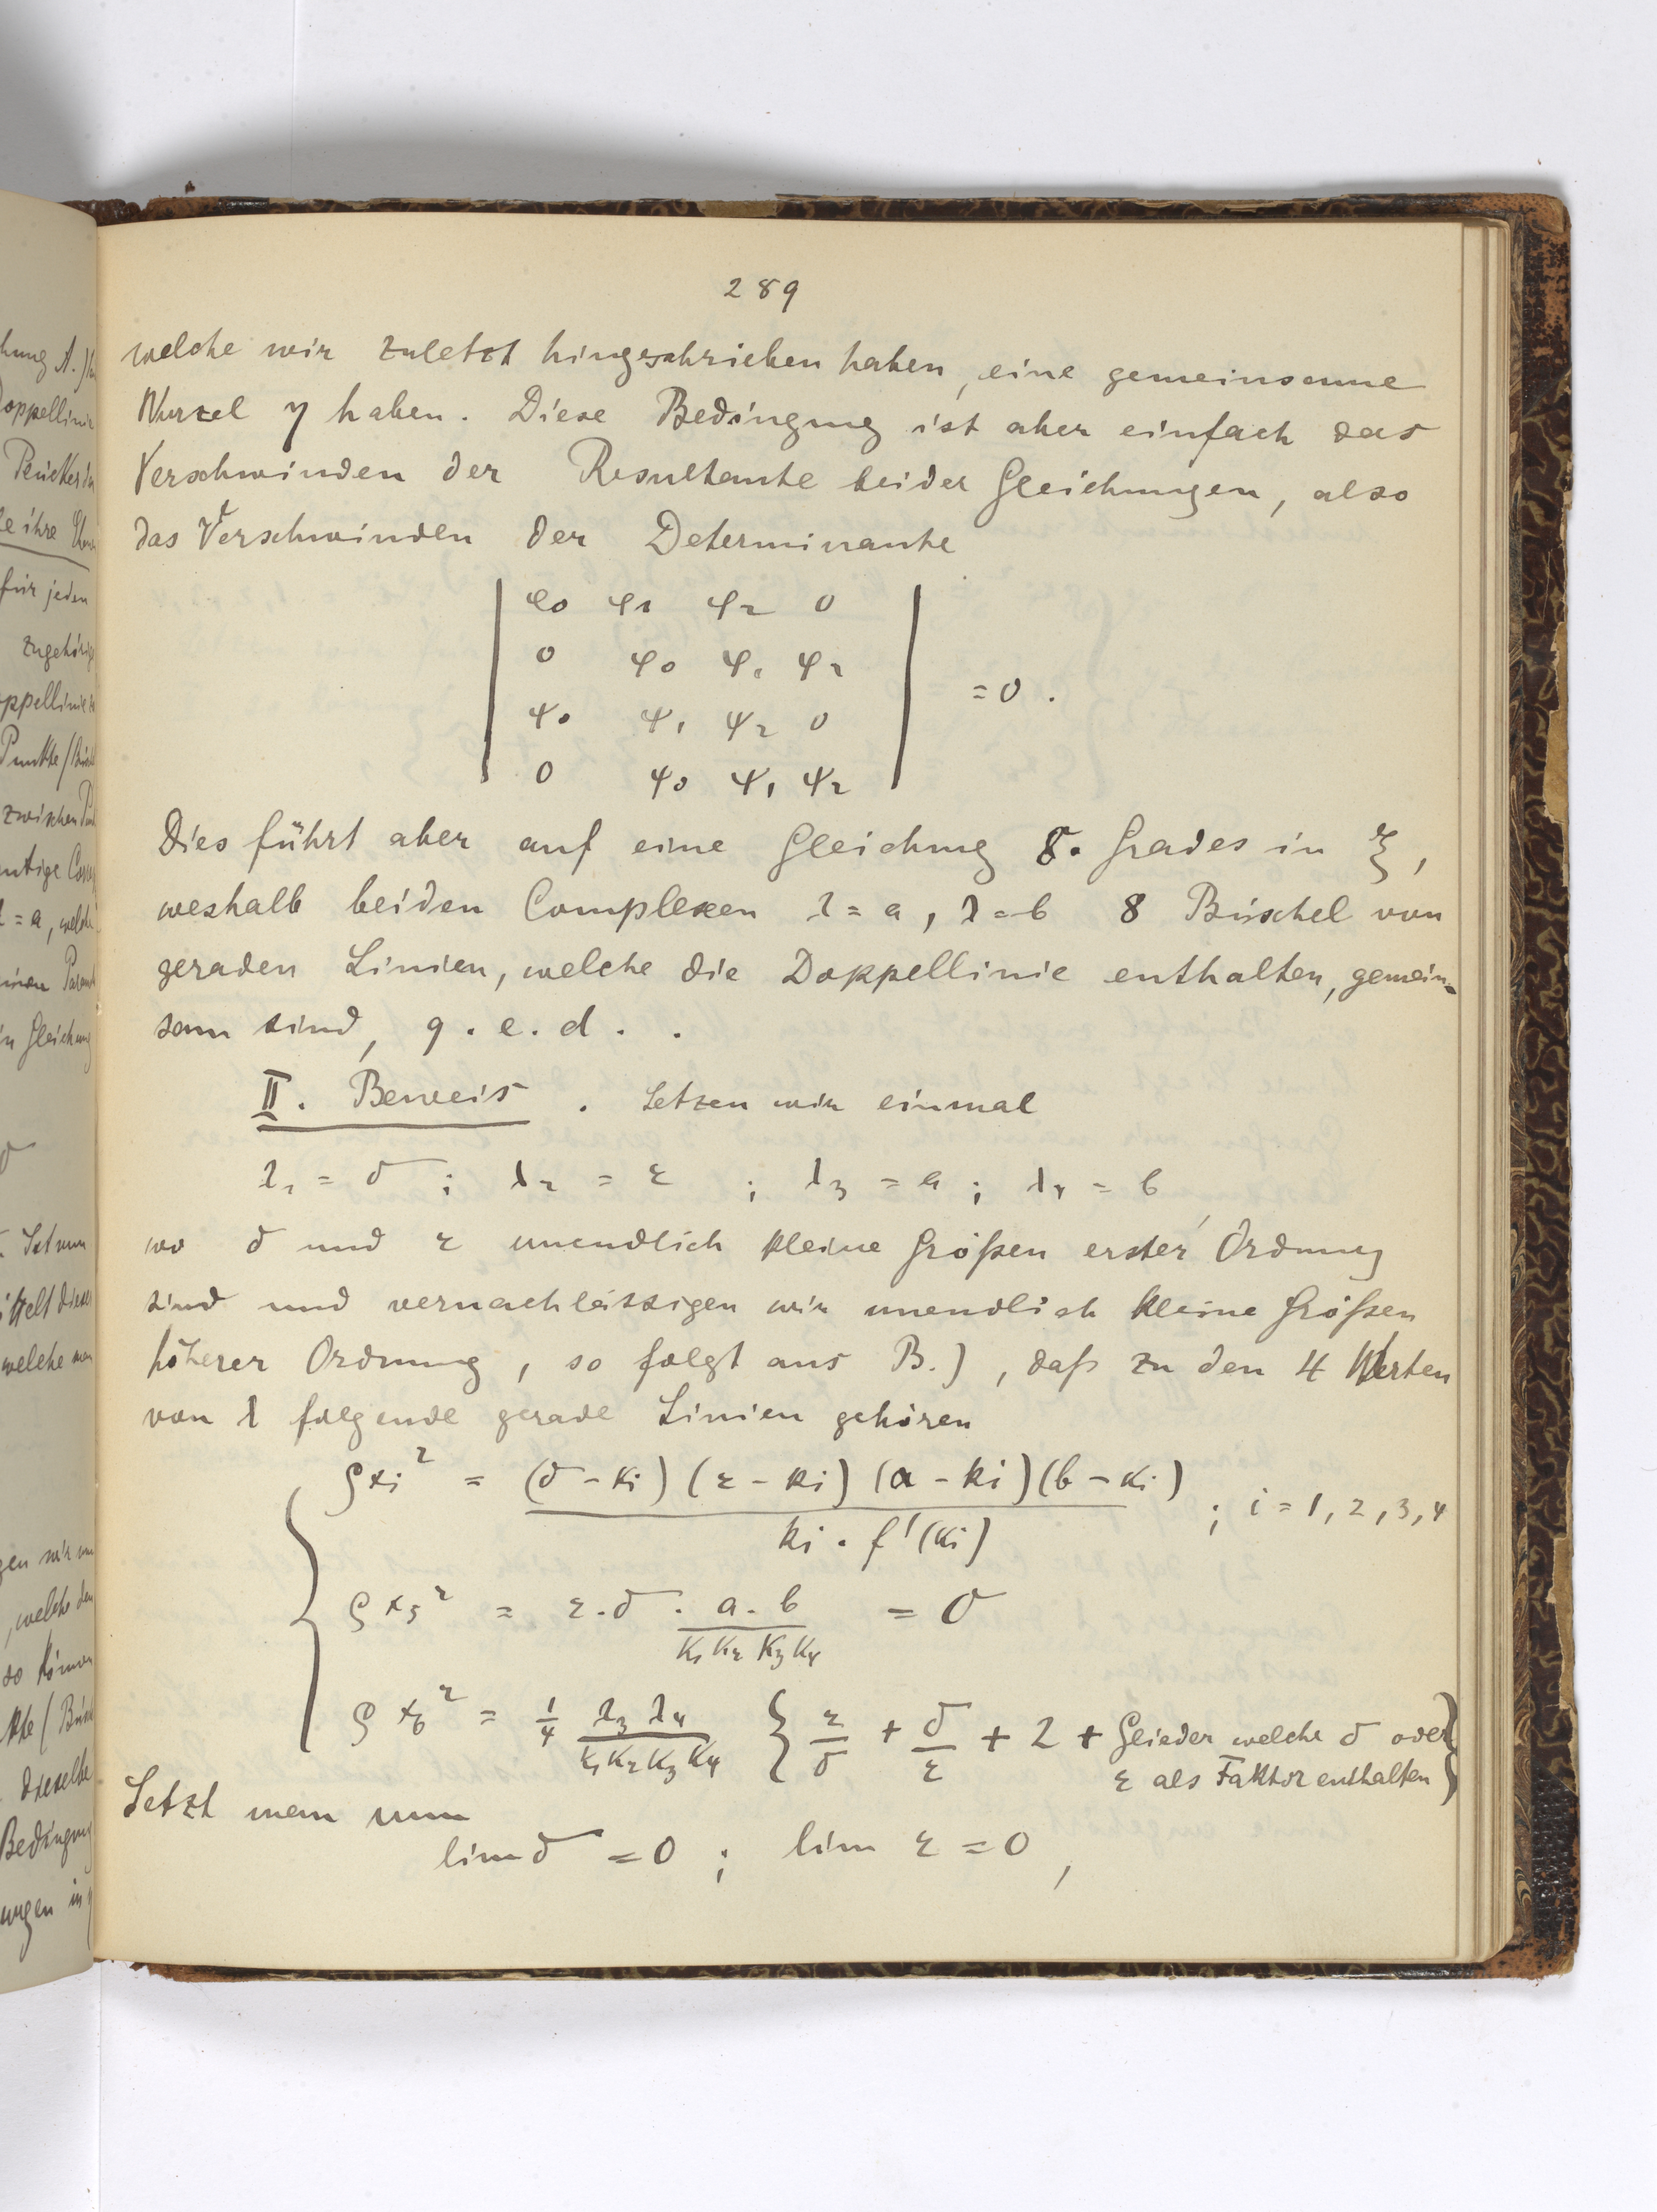 289
welche wir zuletzt hingeschrieben haben, eine gemeinsame
Wurzel η haben. Diese Bedingung ist aber einfach das
Verschwinden der Resultante beider Gleichungen, also
das Verschwinden der Determinante
| φ0 φ1 φ2 0 |
| 0 φ0 φ1 φ2 |
| ψ0 ψ1 ψ2 0 | = 0 .
| 0 ψ0 ψ1 ψ2 |
Dies führt aber auf eine Gleichung 8. Grades in ξ,
weshalb beiden Complexen λ = a, λ = b 8 Büschel von
geraden Linien, welche die Doppellinie enthalten, gemein-
sam sind, q. e. d. .
II. Beweis . Setzen wir einmal
λ1 = δ ; λ2 = ε ; λ3 = a ; λ4 = b
wo δ und ε unendlich kleine Größen erster Ordnung
sind und vernachlässigen wir unendlich kleine Größen
höherer Ordnung, so folgt aus B.), daß zu den 4 Werten
von λ folgende gerade Linien gehören
ρxi² = (δ - κi) (ε - κi) (a - κi) (b - κi) / κi . f'(κi) ; i = 1, 2, 3, 4
ρx5² = ε . δ . a . b / κ1 κ2 κ3 κ4 = 0
ρx6² = 1/4 λ3 λ4 / κ1 κ2 κ3 κ4 { ε/δ + δ/ε + 2 + Glieder welche δ oder
ε als Faktor enthalten }
Setzt man nun
lim δ = 0 ; lim ε = 0 ,